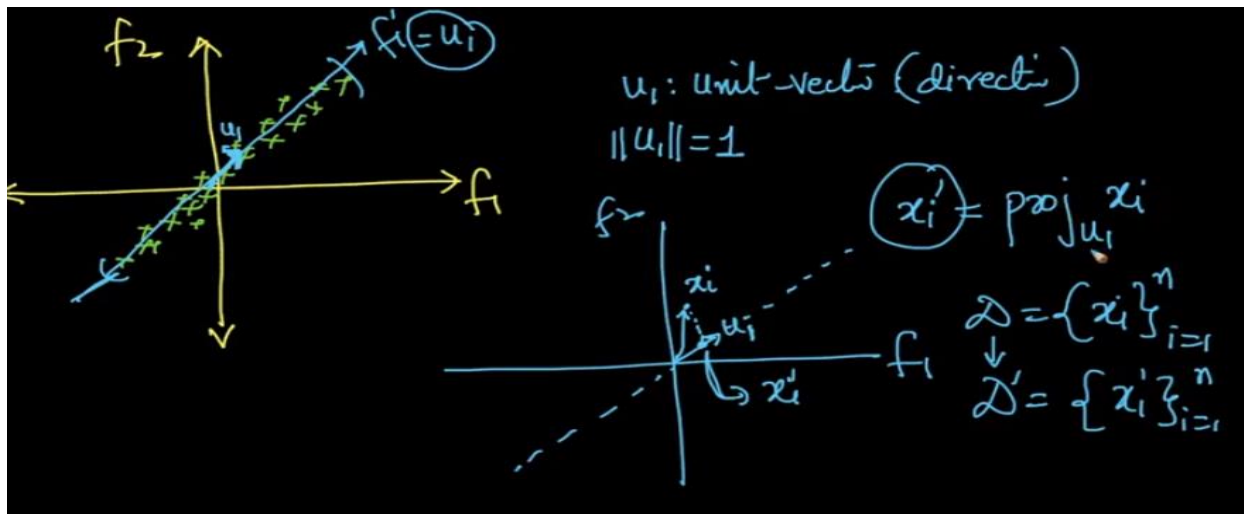 f₂
f₁' = u₁
u₁
f₁
u₁: unit-vector (direction)
||u₁|| = 1
xᵢ' = proj_u₁ xᵢ
f₂
xᵢ
u₁
f₁
xᵢ'
D = {xᵢ}ⁿᵢ₌₁
↓
D' = {xᵢ'}ⁿᵢ₌₁